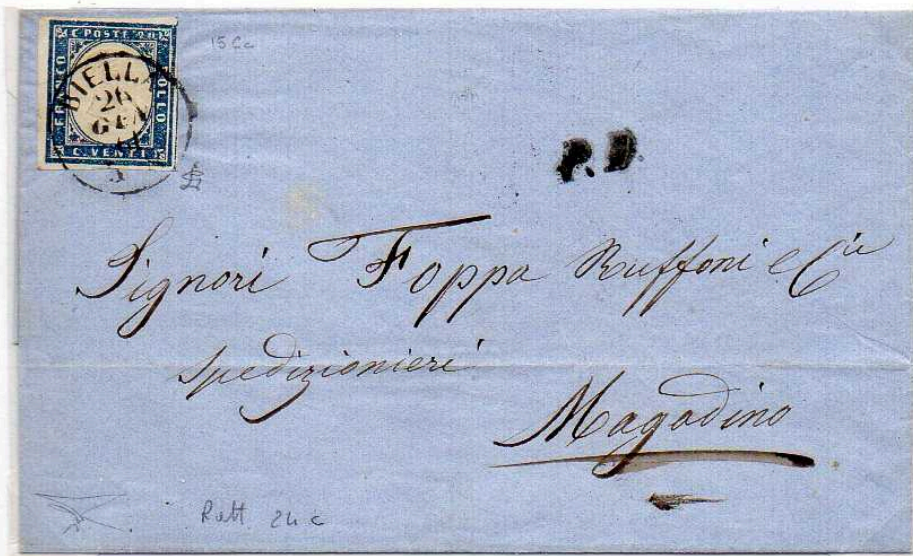 C POSTE 20
FRANCO
BOLLO
C. VENTI
BIELLA
26
GEN
15 Cc
P.D.
Signori Foppa Ruffoni e Cie
spedizionieri
Magadino
Ratt 24 c